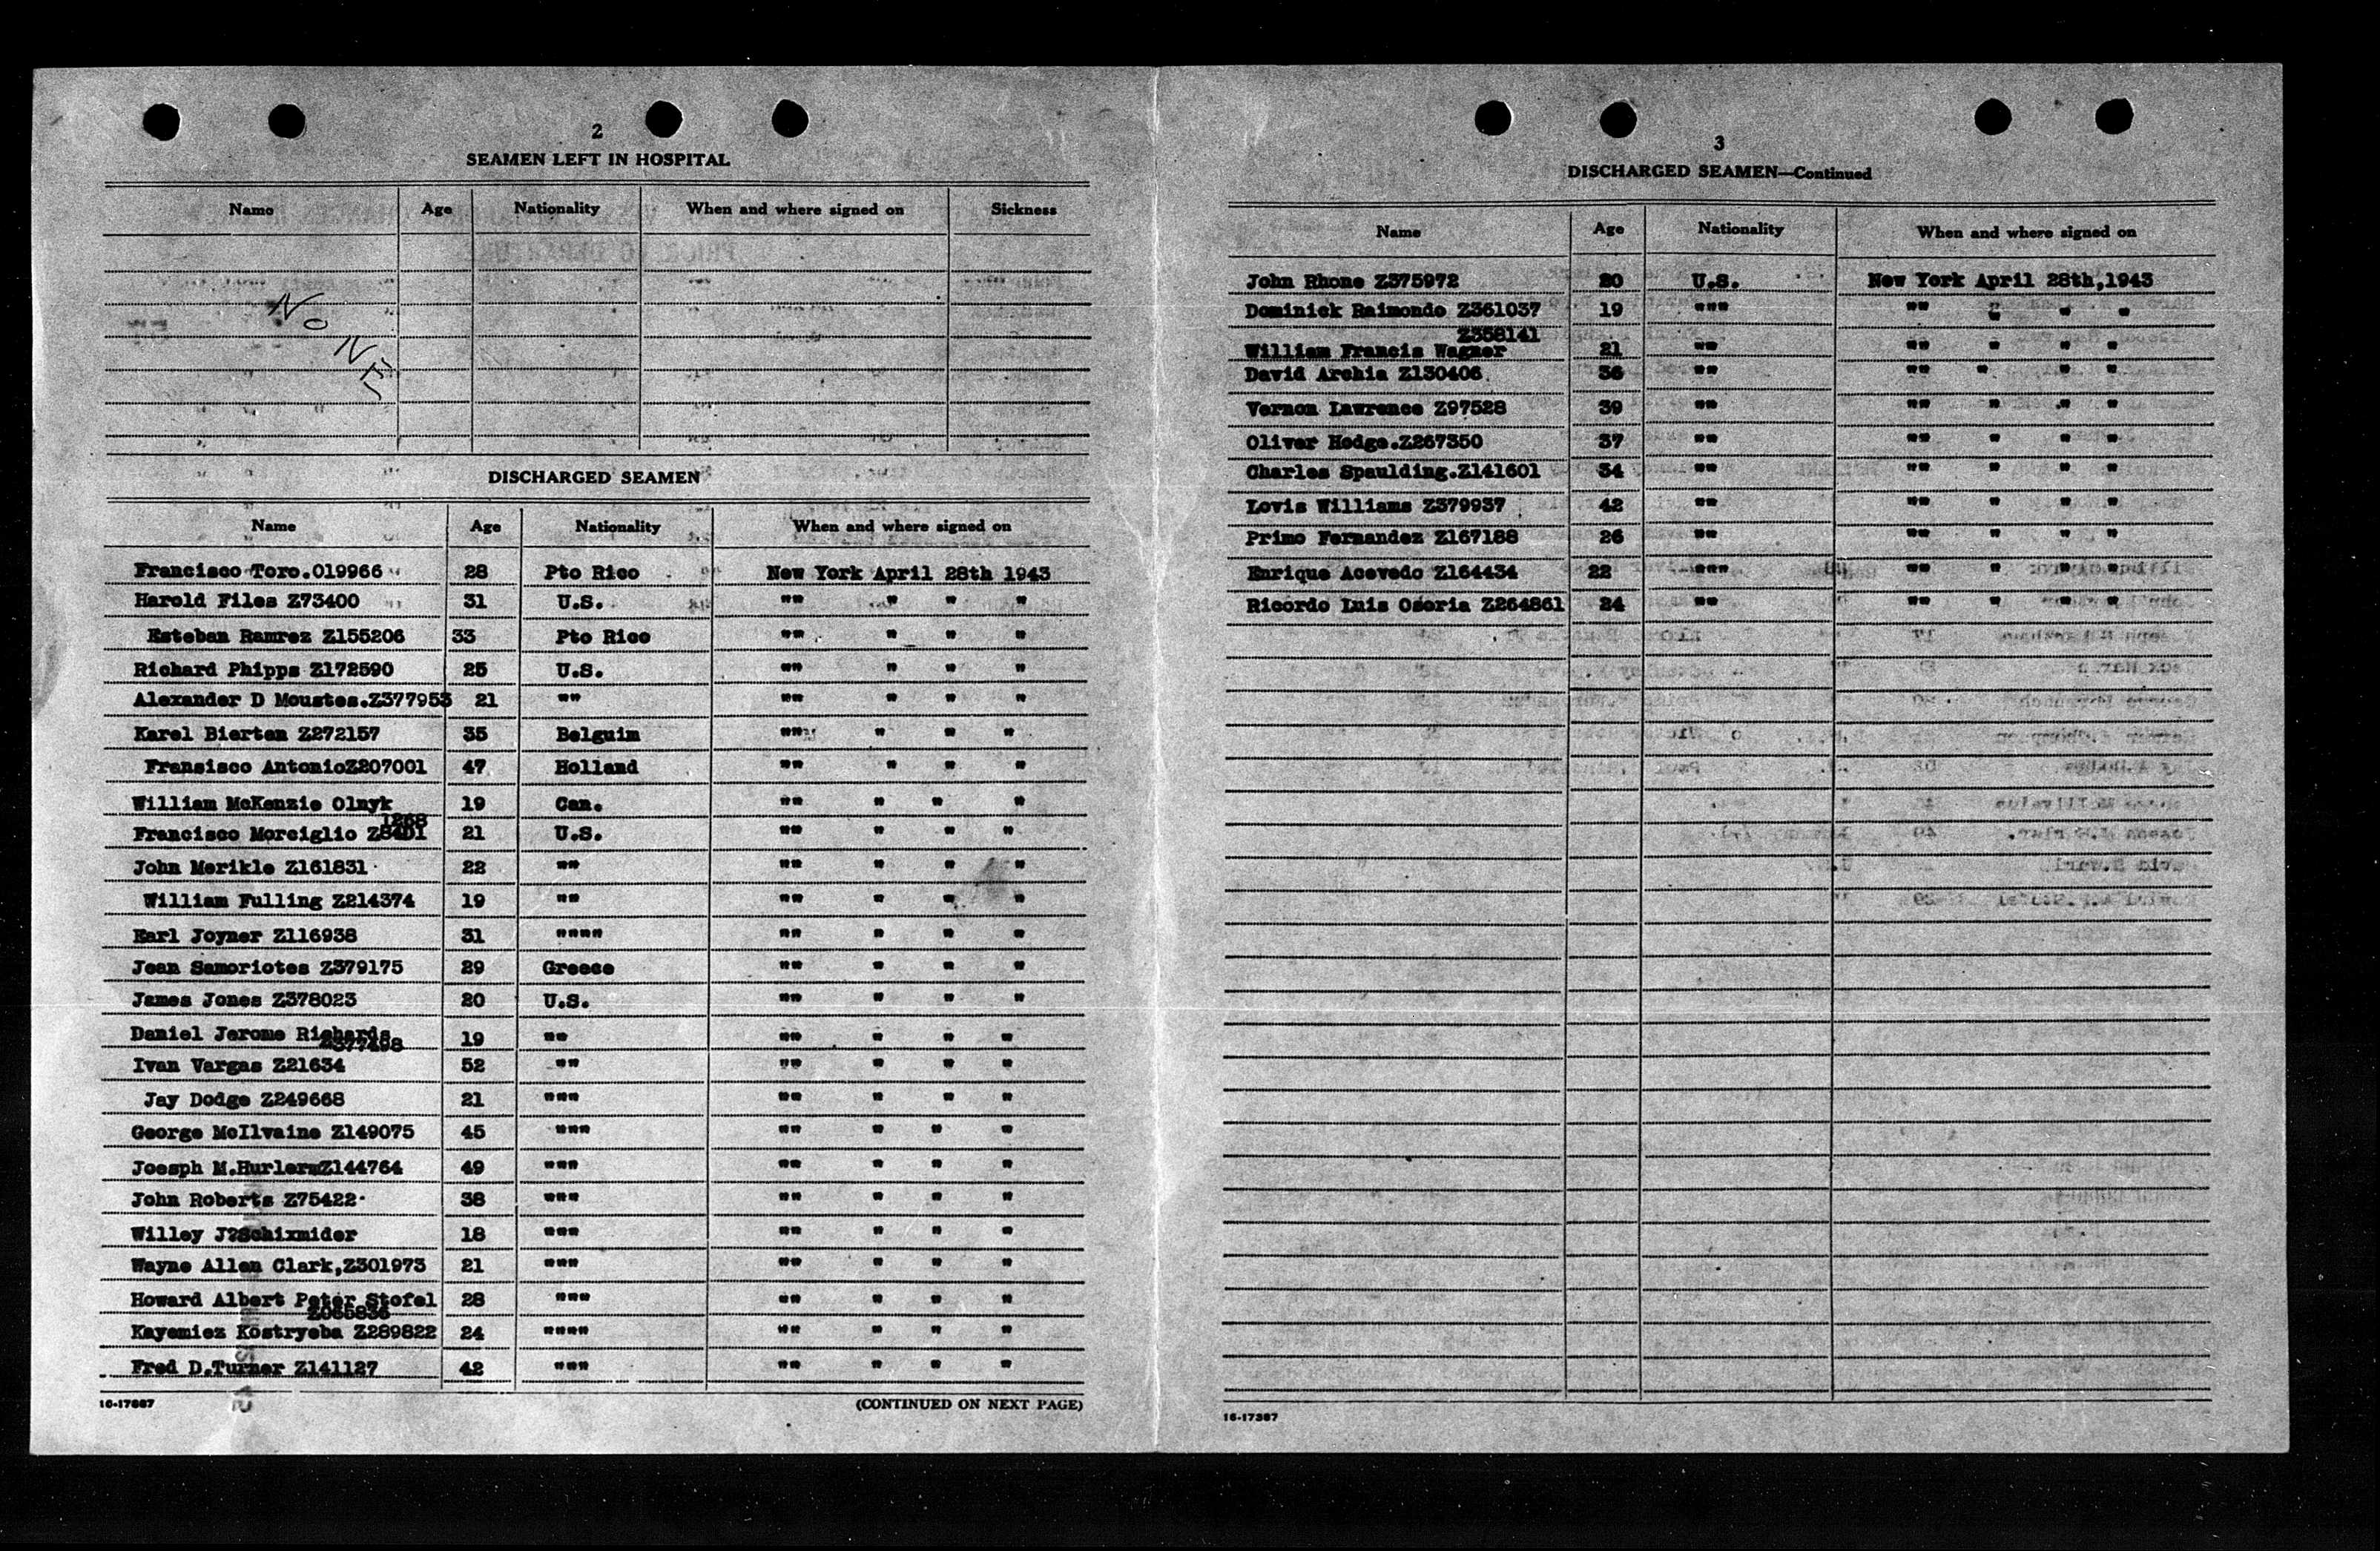 2
SEAMEN LEFT IN HOSPITAL
Name Age Nationality When and where signed on Sickness
NONE
DISCHARGED SEAMEN
Name Age Nationality When and where signed on
Francisco Toro.019966 28 Pto Rico New York April 28th 1943
Harold Files Z73400 31 U.S. "" " " "
Esteban Ramrez Z155206 33 Pto Rico "" " " "
Richard Phipps Z172590 25 U.S. "" " " "
Alexander D Moustes.Z377953 21 "" "" " " "
Karel Bierten Z272157 35 Belguim "" " " "
Fransisco AntonioZ207001 47 Holland "" " " "
William McKenzie Olnyk 19 Can. "" " " "
Francisco Morciglio 21 U.S. "" " " "
John Merikle Z161831 22 "" "" " " "
William Fulling Z214374 19 "" "" " " "
Earl Joyner Z116938 31 """" "" " " "
Jean Samoriotes Z379175 29 Greece "" " " "
James Jones Z378023 20 U.S. "" " " "
Daniel Jerome Richards 19 "" "" " " "
Z377498
Ivan Vargas Z21634 52 "" "" " " "
Jay Dodge Z249668 21 """ "" " " "
George McIlvaine Z149075 45 """ "" " " "
Joesph M.Hurler Z144764 49 """ "" " " "
John Roberts Z75422 38 """ "" " " "
Willey J?Schixmider 18 """ "" " " "
Wayne Allen Clark,Z301973 21 """ "" " " "
Howard Albert Peter Stofel 28 """ "" " " "
Z065836
Kayemiez Kostryeba Z289822 24 """" "" " " "
Fred D.Turner Z141127 42 """ "" " " "
16-17387 (CONTINUED ON NEXT PAGE)
3
DISCHARGED SEAMEN—Continued
Name Age Nationality When and where signed on
John Rhone Z375972 20 U.S. New York April 28th,1943
Dominick Raimondo Z361037 19 """ "" " " "
Z358141
William Francis Wagner 21 "" "" " " "
David Archia Z130406 36 "" "" " " "
Vernon Lawrence Z97528 39 "" "" " " "
Oliver Hodge.Z267350 37 "" "" " " "
Charles Spaulding.Z141601 34 "" "" " " "
Lovis Williams Z379937 42 "" "" " " "
Primo Fernandez Z167188 26 "" "" " " "
Enrique Acevedo Z164434 22 """ "" " " "
Ricordo Luis Osoria Z264861 24 "" "" " " "
16-17387